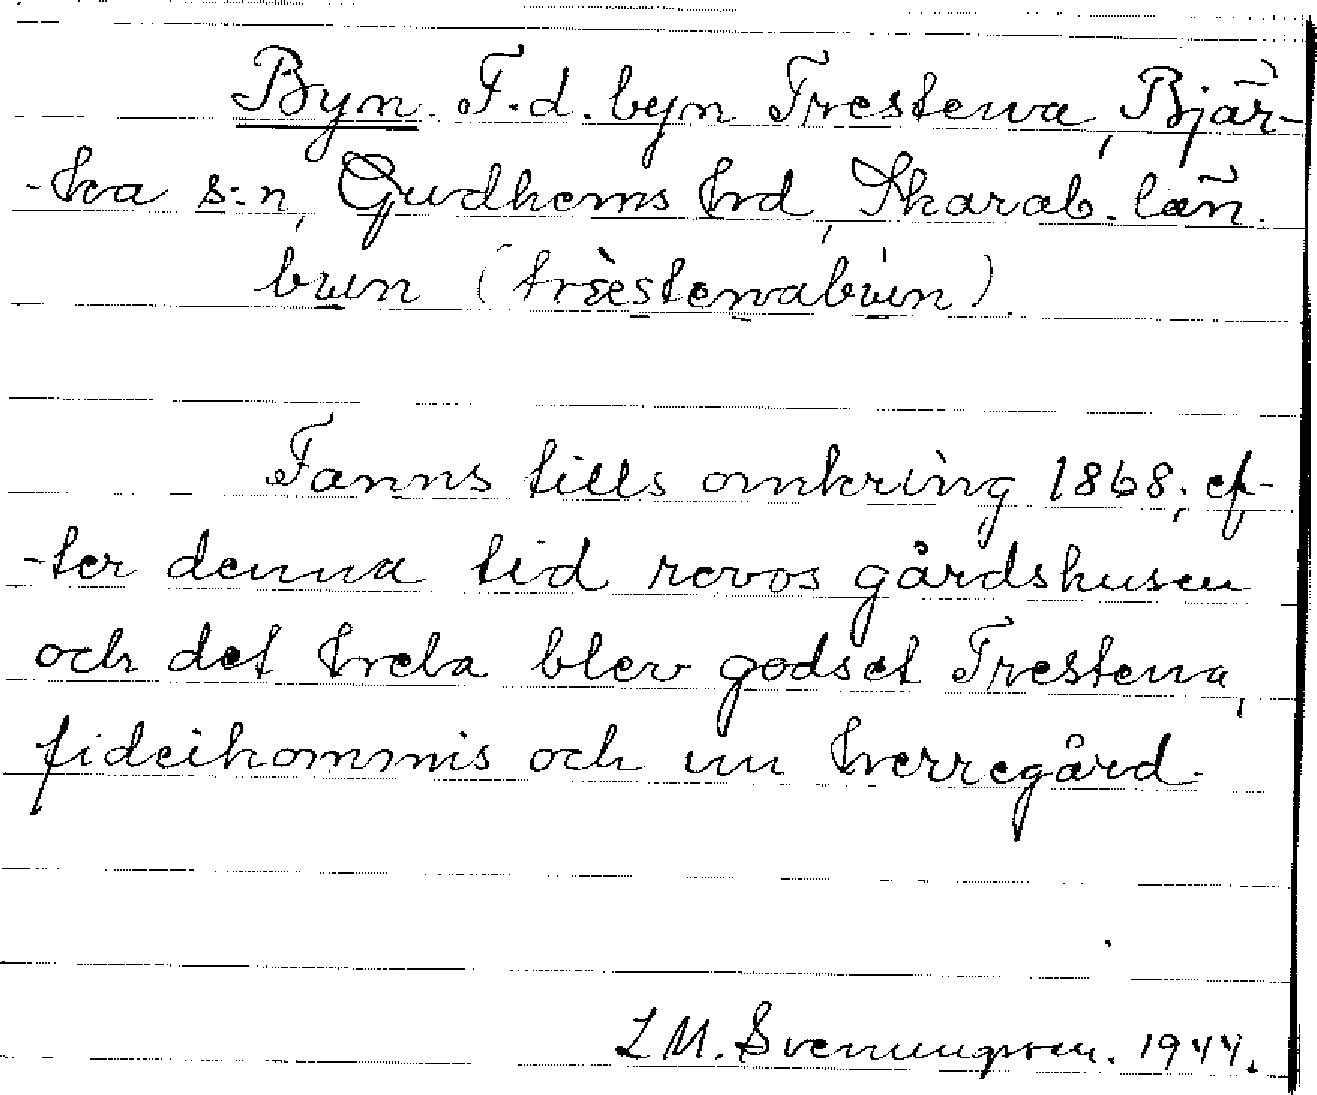 Byn. F.d. byn Trestena, Bjär-
-ka s:n, Gudhems hrd, Skarab. län.
byn (trèstenabyn)
Fanns tills omkring 1868; ef-
-ter denna tid revos gårdshusen
och det hela blev godset Trestena,
fideikommis och en herregård.
L M. Svenungsson. 1944.